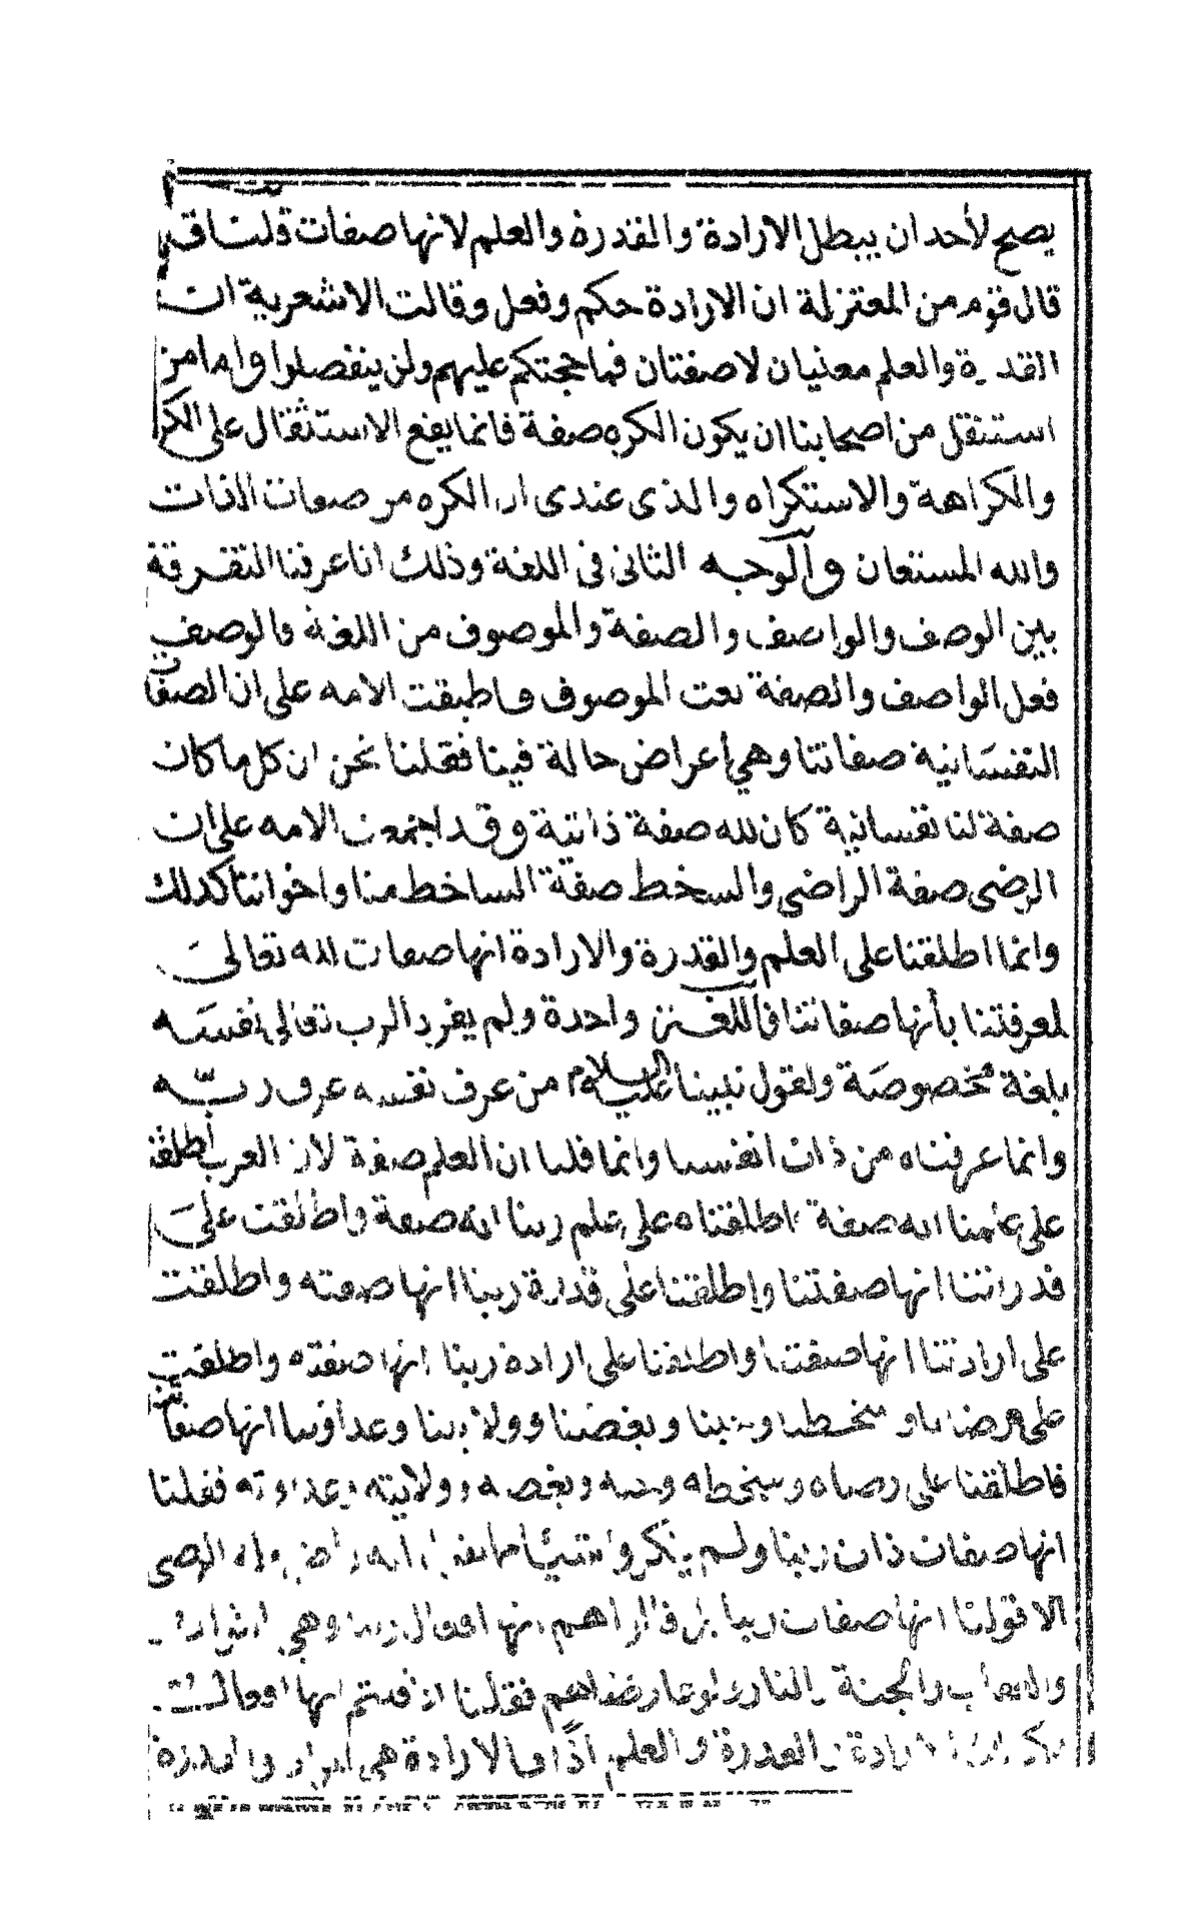 يصح لأحد ان يبطل الارادة والقدرة والعلم لانها صفات قلنا قد
قال قوم من المعتزلة ان الارادة حكم وفعل وقالت الاشعرية ان
القدرة والعلم معنيان لا صفتان فما حجتكم عليهم ولن ينفصلوا واما من
استثقل من اصحابنا ان يكون الكره صفة فانما يقع الاستثقال على الكره
والكراهة والاستكراه والذى عندى ان الكره من صفات الذات
والله المستعان والوجه الثانى فى اللغة وذلك انا عرفنا التفرقة
بين الوصف والواصف والصفة والموصوف من اللغة فالوصف
فعل الواصف والصفة نعت الموصوف فاطبقت الامه على ان الصفات
النفسانية صفاتنا وهي أعراض حالة فينا فقلنا نحن ان كل ما كان
صفة لنا نفسانية كان لله صفة ذاتية وقد اجتمعت الامه على ان
الرضى صفة الراضى والسخط صفة الساخط منا واخواننا كذلك
وانما اطلقنا على العلم والقدرة والارادة انها صفات الله تعالى
لمعرفتنا بأنها صفاتنا فاللغة واحدة ولم يفرد الرب تعالى نفسه
بلغة مخصوصة ولقول نبينا عليه السلام من عرف نفسه عرف ربه
وانما عرفناه من ذات انفسنا وانما قلنا ان العلم صفة لان العرب اطلقت
على علمنا انه صفة اطلقناه على علم ربنا انه صفة واطلقت على
قدرتنا انها صفتنا واطلقنا على قدرة ربنا انها صفته واطلقت
على ارادتنا انها صفتنا واطلقنا على ارادة ربنا انها صفته واطلقت
على رضانا وسخطنا وحبنا وبغضنا وولايتنا وعداوتنا انها صفاتنا
فاطلقنا على رضاه وسخطه وحبه وبغضه وولايته وعداوته فقلنا
انها صفات ذات ربنا ولم ينكروا شيئا انه راض وله الرضى
الا قولنا انها صفات ربنا بل قالوا هم انها افعال ربنا وهي
والجنة والنار لو عارضناهم فقلنا اذ قلتم انها افعال
الارادة والقدرة والعلم اذا فالارادة هي والقدرة